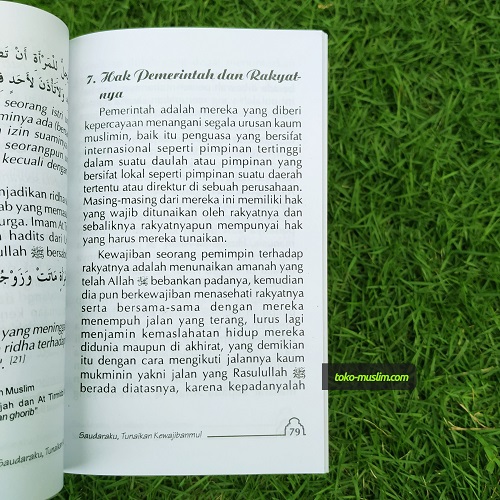 seorang istri
minya ada (ber
izin suaminy
seorangpun
kecuali dengan
njadikan ridha
ab yang memas
urga. Imam At T
hadits dari U
ullah ﷺ bersab
yang mening
ridha terhadap
." [21]
Muslim
jah dan At Tirmidz
an ghorib"
Saudaraku, Tu
7. Hak Pemerintah dan Rakyat-
nya
Pemerintah adalah mereka yang diberi
kepercayaan menangani segala urusan kaum
muslimin, baik itu penguasa yang bersifat
internasional seperti pimpinan tertinggi
dalam suatu daulah atau pimpinan yang
bersifat lokal seperti pimpinan suatu daerah
tertentu atau direktur di sebuah perusahaan.
Masing-masing dari mereka ini memiliki hak
yang wajib ditunaikan oleh rakyatnya dan
sebaliknya rakyatnyapun mempunyai hak
yang harus mereka tunaikan.
Kewajiban seorang pemimpin terhadap
rakyatnya adalah menunaikan amanah yang
telah Allah ﷻ bebankan padanya, kemudian
dia pun berkewajiban menasehati rakyatnya
serta bersama-sama dengan mereka
menempuh jalan yang terang, lurus lagi
menjamin kemaslahatan hidup mereka
didunia maupun di akhirat, yang demikian
itu dengan cara mengikuti jalannya kaum
mukminin yakni jalan yang Rasulullah ﷺ
berada diatasnya, karena kepadanyalah
Saudaraku, Tunaikan Kewajibanmu!
79
toko-muslim.com